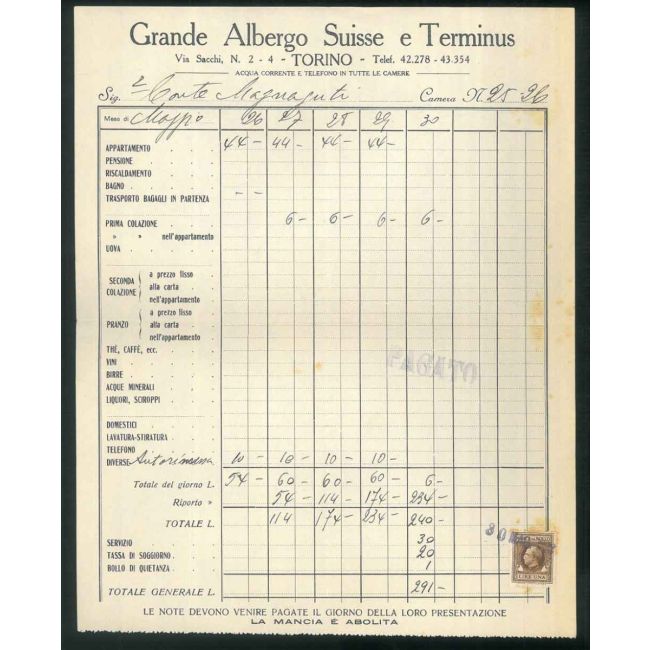 Grande Albergo Suisse e Terminus
Via Sacchi, N. 2 - 4 - TORINO - Telef. 42.278 - 43.354
ACQUA CORRENTE E TELEFONO IN TUTTE LE CAMERE
Sig. Conte Magnaguti Camera N. 25 26
Mese di Maggio 26 27 28 29 30
APPARTAMENTO 44- 44- 44- 44-
PENSIONE
RISCALDAMENTO
BAGNO
TRASPORTO BAGAGLI IN PARTENZA - -
PRIMA COLAZIONE 6- 6- 6- 6-
» » nell'appartamento
UOVA
SECONDA COLAZIONE
a prezzo fisso
alla carta
nell'appartamento
PRANZO
a prezzo fisso
alla carta
nell'appartamento
THÉ, CAFFÉ, ecc.
PAGATO
VINI
BIRRE
ACQUE MINERALI
LIQUORI, SCIROPPI
DOMESTICI
LAVATURA-STIRATURA
TELEFONO
DIVERSE Autorimessa 10- 10- 10- 10-
Totale del giorno L. 54- 60- 60- 60- 6-
Riporto » 54- 114- 174- 234-
TOTALE L. 114 174- 234- 240-
SERVIZIO 30
TASSA DI SOGGIORNO 20
BOLLO DI QUIETANZA 1
TOTALE GENERALE L. 291-
30
LIRE UNA
LE NOTE DEVONO VENIRE PAGATE IL GIORNO DELLA LORO PRESENTAZIONE
LA MANCIA È ABOLITA